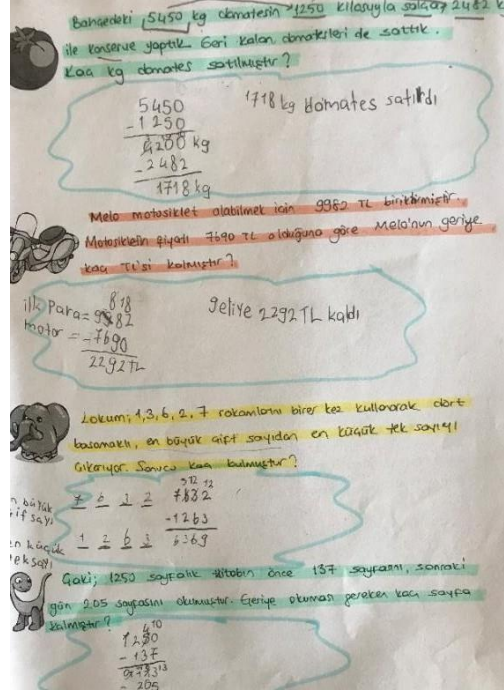 Bahçedeki 5450 kg domatesin 1250 kilosuyla salça, 2482 k
ile konserve yaptık. Geri kalan domatesleri de sattık.
Kaç kg domates satılmıştır?
5450
-1250
4200 kg
-2482
1718 kg
1718 kg domates satıldı
Melo motosiklet alabilmek için 9982 TL biriktirmiştir.
Motosikletin fiyatı 7690 TL olduğuna göre Melo'nun geriye
kaç TL'si kalmıştır?
ilk Para = 9982
motor = -7690
2292 TL
geriye 2292 TL kaldı
Lokum; 1, 3, 6, 2, 7 rakamlarını birer kez kullanarak dört
basamaklı, en büyük çift sayıdan en küçük tek sayıyı
çıkarıyor. Sonucu kaç bulmuştur?
n büyük
if sayı
7 6 3 2
en küçük
tek sayı
1 2 6 3
7632
-1263
6369
Gaki; 1250 sayfalık kitabın önce 137 sayfasını, sonraki
gün 205 sayfasını okumuştur. Geriye okuması gereken kaç sayfa
kalmıştır?
1250
- 137
- 205